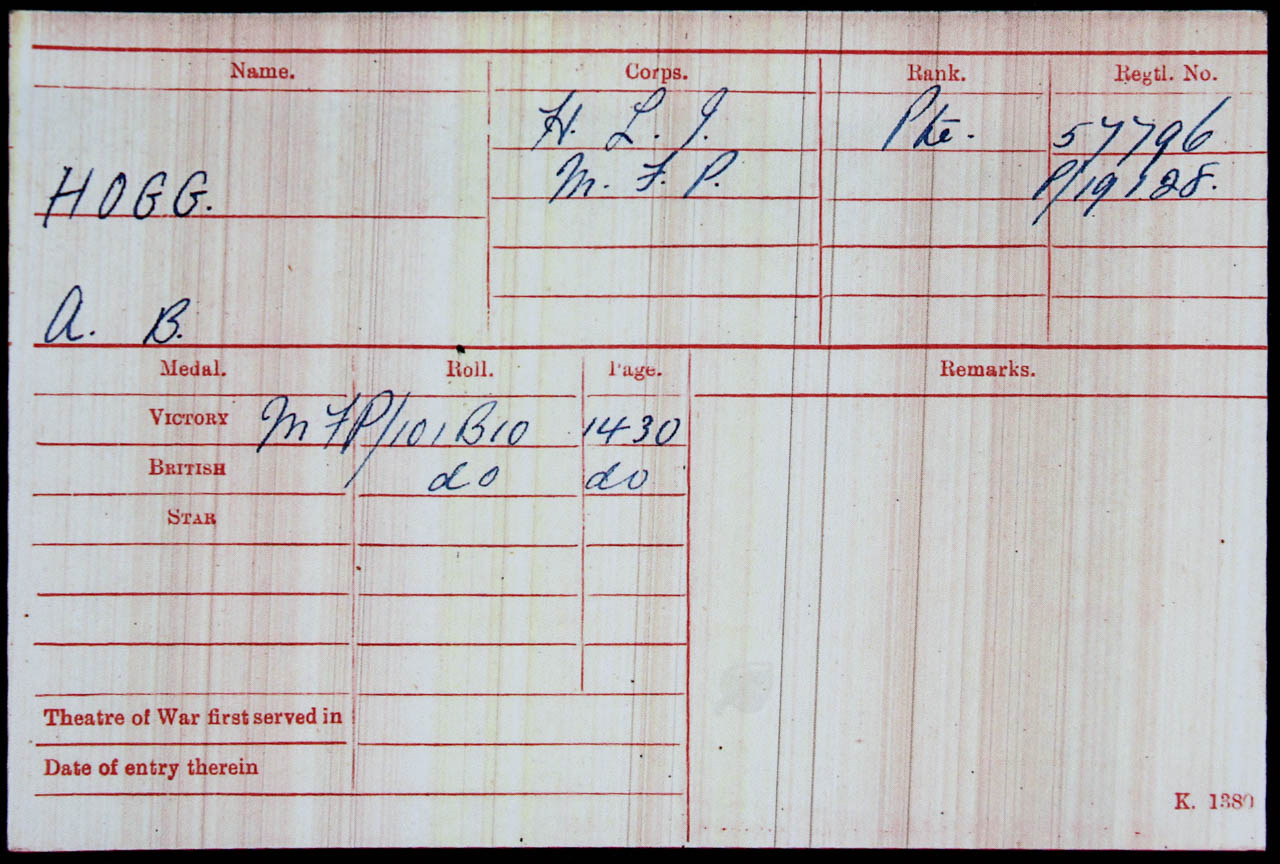 Name. Corps. Rank. Regtl. No.
H. L. I. Pte. 57796
HOGG. M. F. P. P/19128.
A. B.
Medal. Roll. Page. Remarks.
VICTORY MFP/101B10 1430
BRITISH do do
STAR
Theatre of War first served in
Date of entry therein
K. 1380